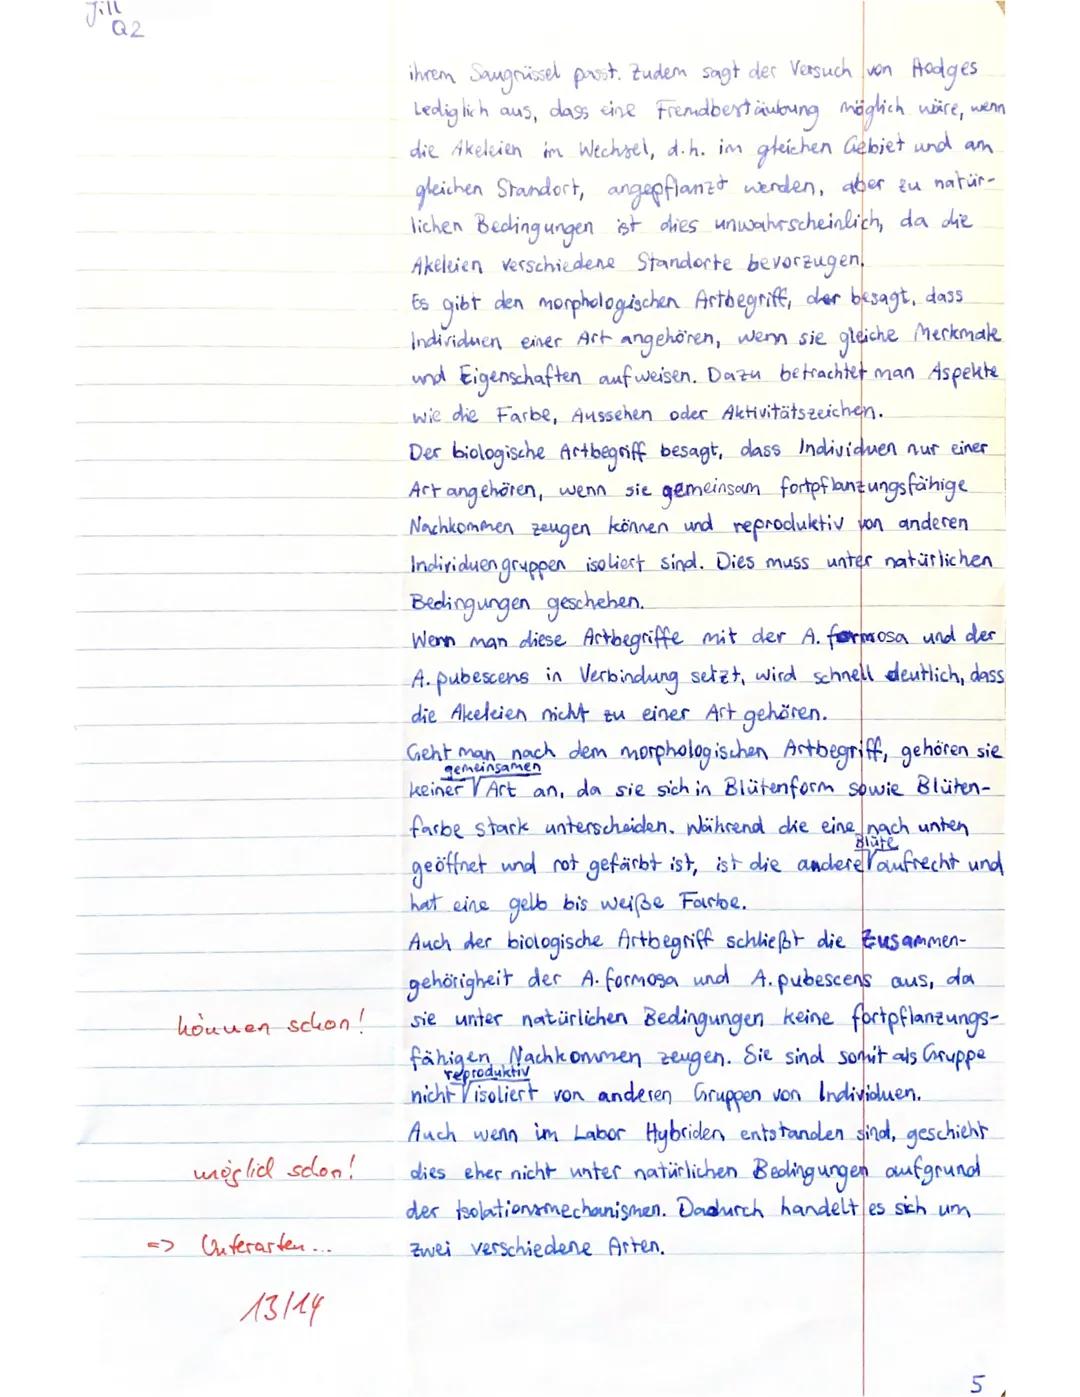 Jill
Q2
ihrem Saugrüssel passt. Zudem sagt der Versuch von Hodges
lediglich aus, dass eine Fremdbestäubung möglich wäre, wenn
die Akeleien im Wechsel, d.h. im gleichen Gebiet und am
gleichen Standort, angepflanzt werden, aber zu natür-
lichen Bedingungen ist dies unwahrscheinlich, da die
Akeleien verschiedene Standorte bevorzugen.
Es gibt den morphologischen Artbegriff, der besagt, dass
Individuen einer Art angehören, wenn sie gleiche Merkmale
und Eigenschaften aufweisen. Dazu betrachtet man Aspekte
wie die Farbe, Aussehen oder Aktivitätszeichen.
Der biologische Artbegriff besagt, dass Individuen nur einer
Art angehören, wenn sie gemeinsam fortpflanzungsfähige
Nachkommen zeugen können und reproduktiv von anderen
Individuengruppen isoliert sind. Dies muss unter natürlichen
Bedingungen geschehen.
Wenn man diese Artbegriffe mit der A. formosa und der
A. pubescens in Verbindung setzt, wird schnell deutlich, dass
die Akeleien nicht zu einer Art gehören.
Geht man nach dem morphologischen Artbegriff, gehören sie
gemeinsamen
keiner √ Art an, da sie sich in Blütenform sowie Blüten-
farbe stark unterscheiden. Während die eine nach unten
Blüte
geöffnet und rot gefärbt ist, ist die andere √ aufrecht und
hat eine gelb bis weiße Farbe.
Auch der biologische Artbegriff schließt die Zusammen-
gehörigkeit der A. formosa und A. pubescens aus, da
können schon! sie unter natürlichen Bedingungen keine fortpflanzungs-
fähigen Nachkommen zeugen. Sie sind somit als Gruppe
reproduktiv
nicht √ isoliert von anderen Gruppen von Individuen.
Auch wenn im Labor Hybriden entstanden sind, geschieht
möglich schon! dies eher nicht unter natürlichen Bedingungen aufgrund
der Isolationsmechanismen. Dadurch handelt es sich um
=> Unterarten... zwei verschiedene Arten.
13/14
5